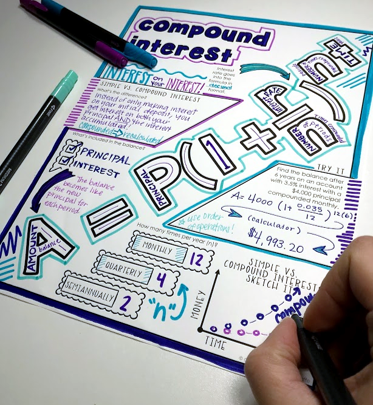 compound
interest
INTEREST on
your INTEREST!
Interest
rate goes
into the
formula in
decimal
format
SIMPLE VS COMPOUND INTEREST
What's the difference?
Instead of only making interest
on your initial deposit, you
get interest on both your
principal AND the interest
accumulated!
What's included in the balance?
PRINCIPAL
INTEREST
The balance
becomes like
the new
principal for
each period
A = P(1 +
AMOUNT
balance
PRINCIPAL
RATE
NUMBER
of periods
TIME
use order
of operations!
TRY IT
Find the balance after
6 years on an account
with 3.5% interest with
$4,000 principal
compounded monthly.
A = 4000 (1 + 0.035/12)^12(6)
(calculator)
$4,993.20
How many times per year (n)?
MONTHLY 12
QUARTERLY 4
SEMIANNUALLY 2
"n"
SIMPLE VS.
COMPOUND INTEREST
SKETCH IT
MONEY
TIME